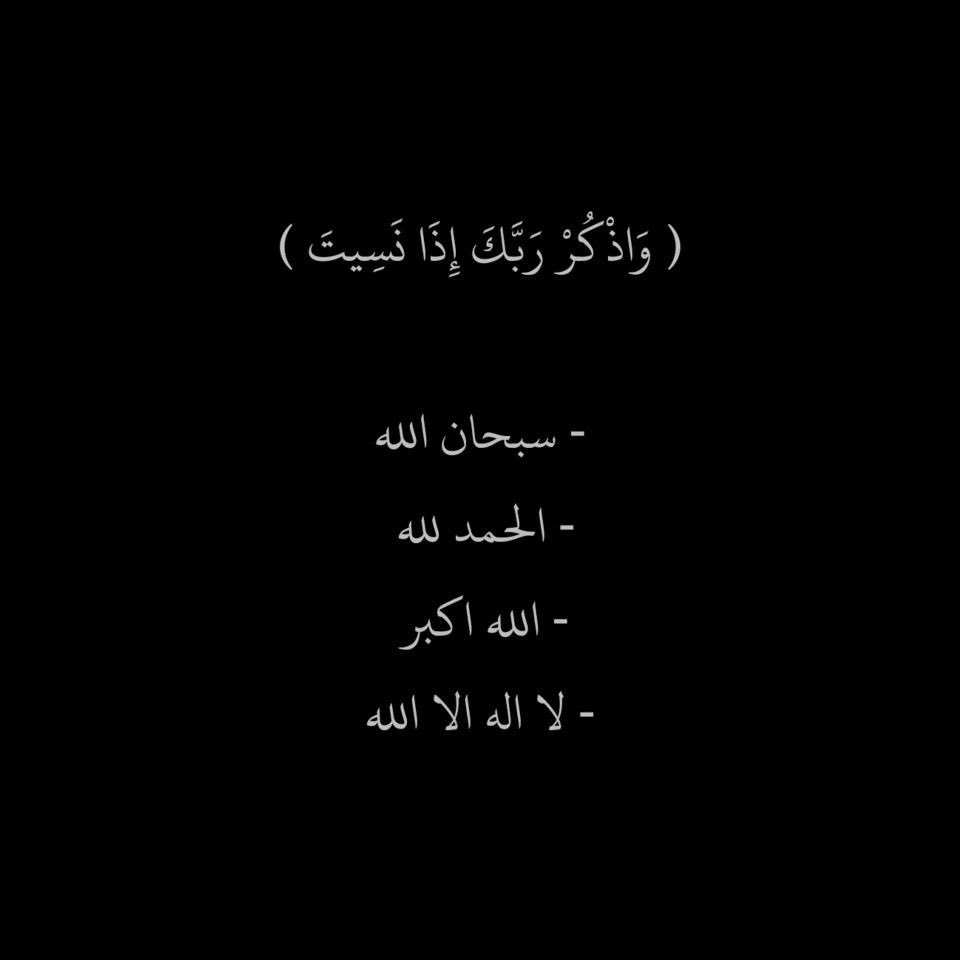 ( وَاذْكُرْ رَبَّكَ إِذَا نَسِيتَ )
- سبحان الله
- الحمد لله
- الله اكبر
- لا اله الا الله